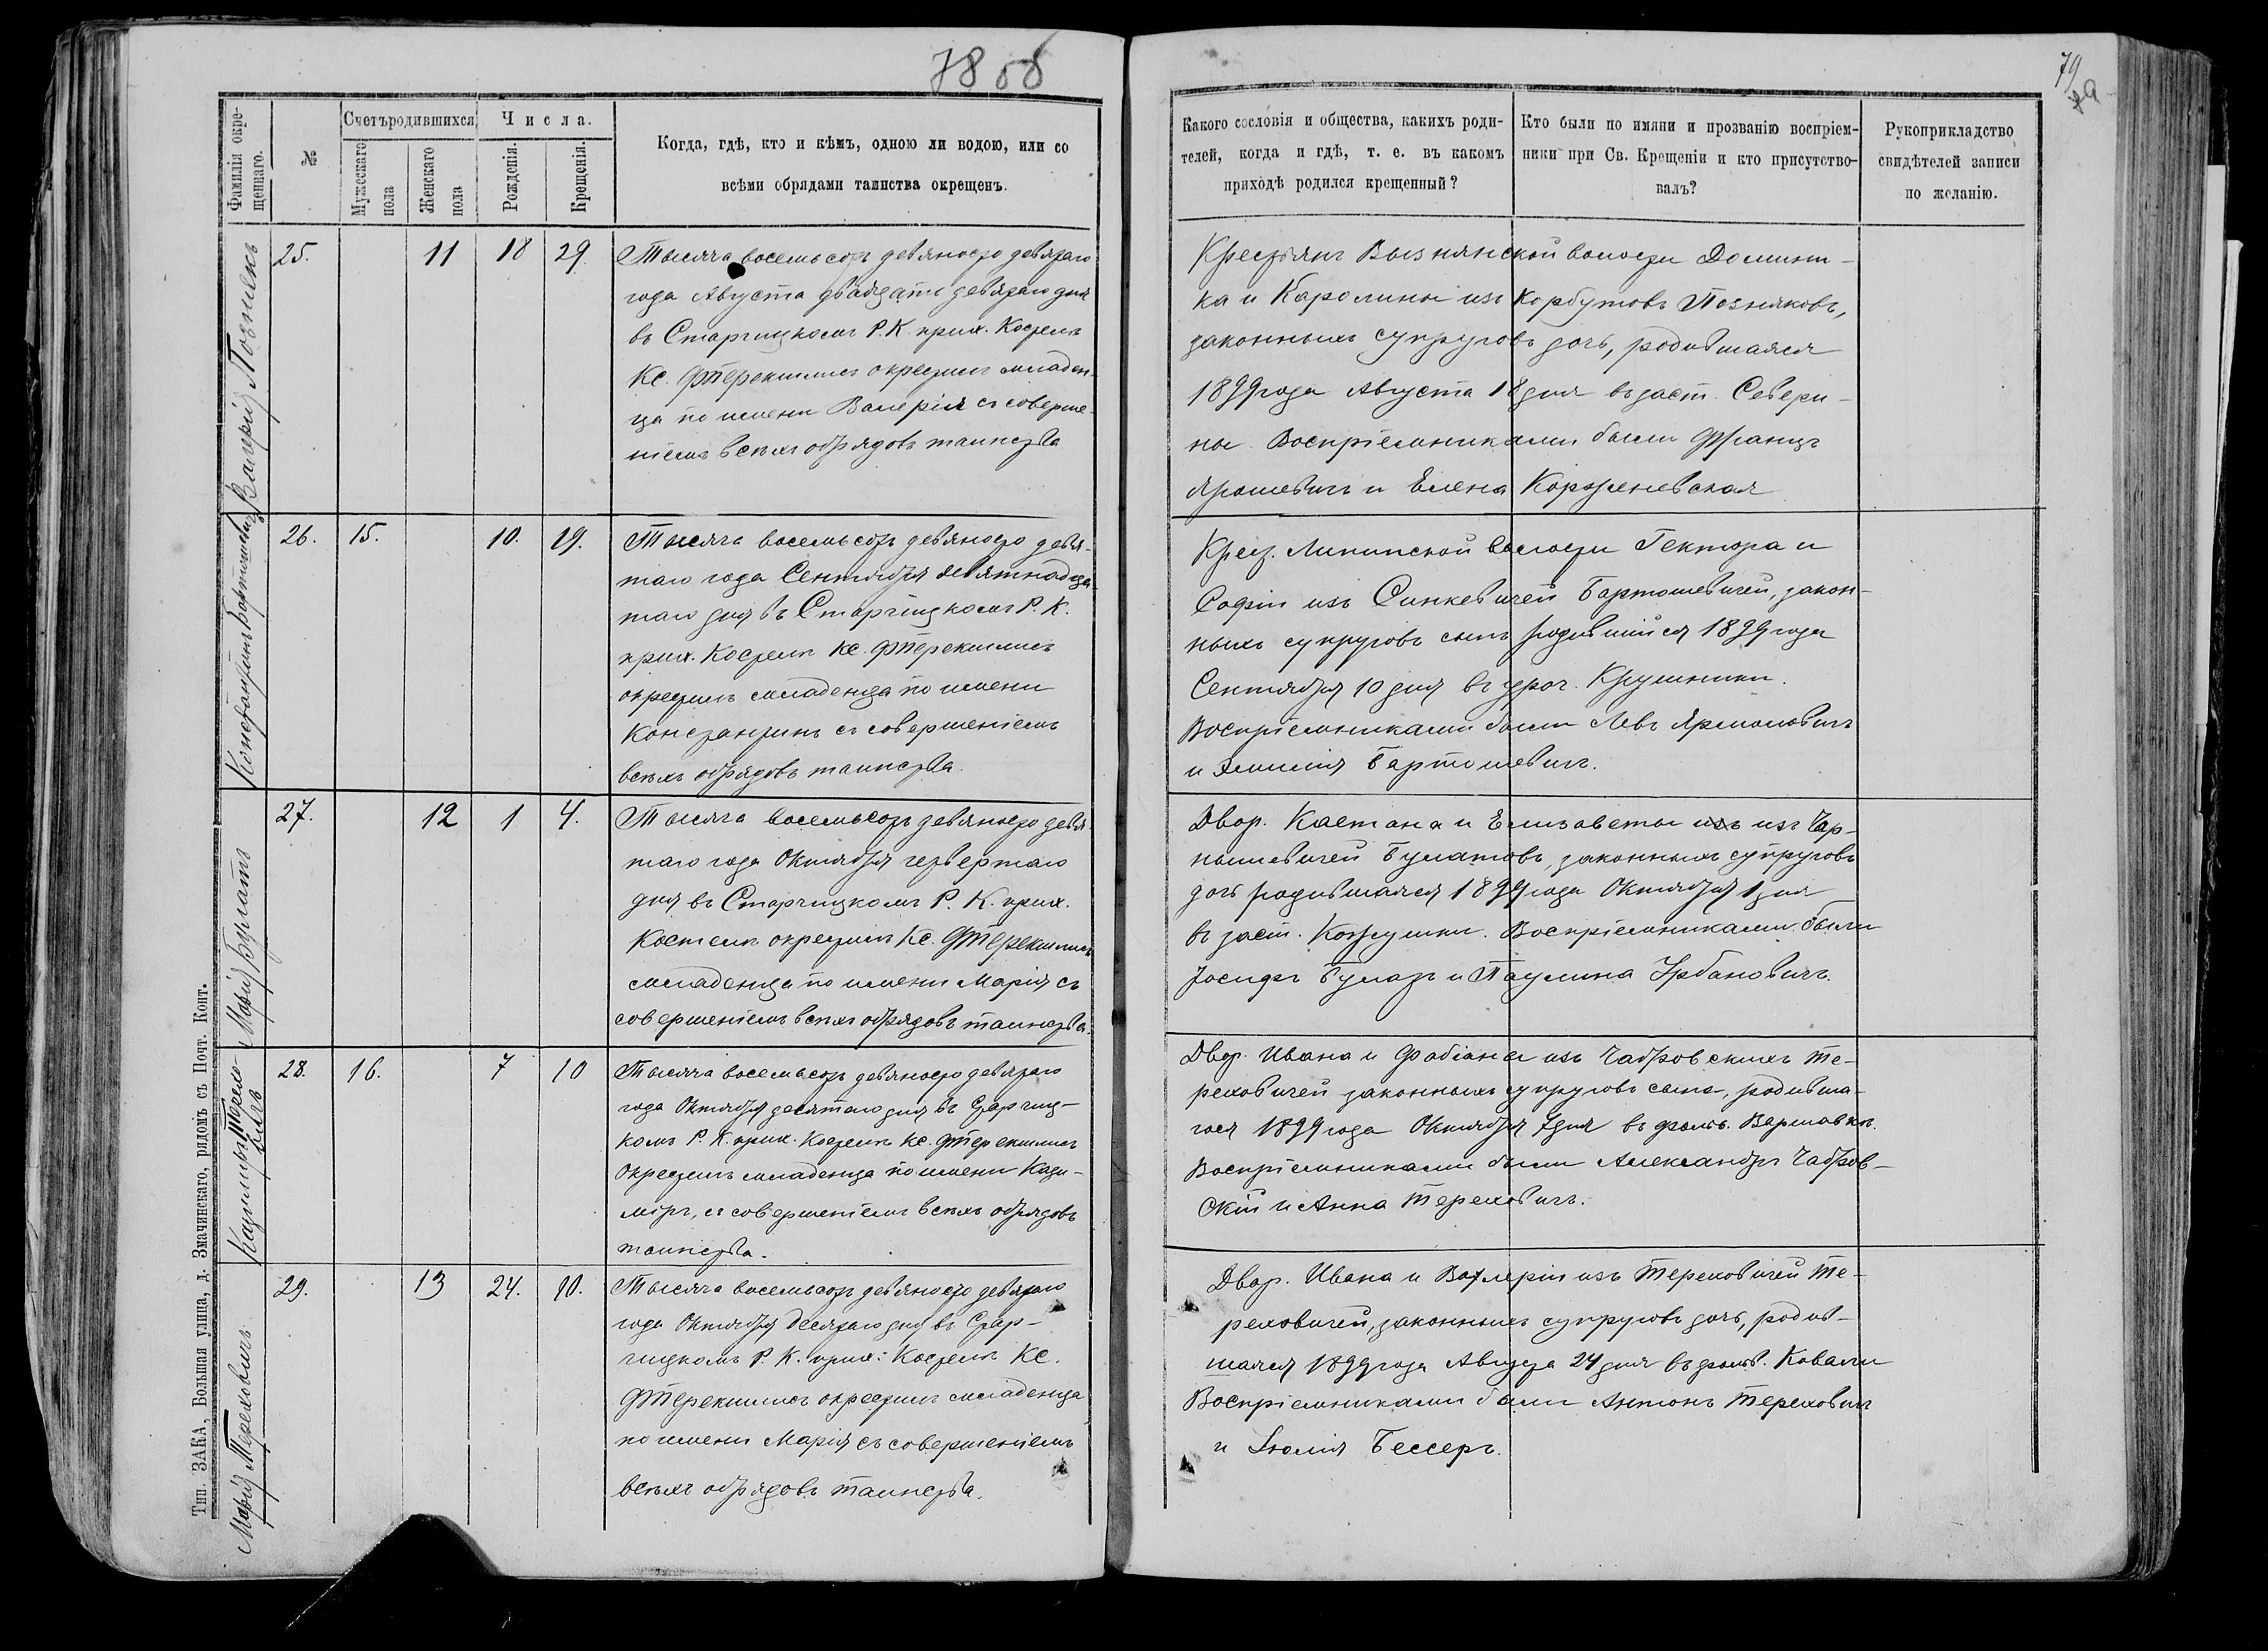 78 об
79
Тип. ЗАКА, Большая улица, д. Змачинскаго, рядомъ съ Почт. Конт.
Фамилія окре-
щеннаго.
№
Счетъ родившихся
Мужескаго
пола
Женскаго
пола
Числа.
Рожденія.
Крещенія.
Когда, гдѣ, кто и кѣмъ, одною ли водою, или со
всѣми обрядами таинства окрещенъ.
Какого сословія и общества, какихъ роди-
телей, когда и гдѣ, т. е. въ какомъ
приходѣ родился крещенный?
Кто были по имяни и прозванію воспріем-
ники при Св. Крещеніи и кто присутство-
валъ?
Рукоприкладство
свидѣтелей записи
по желанію.
Валерія Познякъ
25.
11
18
29
Тысяча восемьсотъ девяносто девятаго
года Августа двадцать девятаго дня
въ Старчицкомъ Р. К. прих. Костелѣ
Кс. ФТерекшлисъ окрестилъ младен-
ца по имени Валерія съ соверше-
ніемъ всѣхъ обрядовъ таинства
Крестьянъ Вызнянской волости Домини-
ка и Каролины изъ Корбутовъ Позняковъ,
законныхъ супруговъ дочь, родившаяся
1899 года Августа 18 дня въ заст. Севери-
ны. Воспріемниками были Францъ
Ярошевичъ и Елена Корженевская
Константинъ Бартошевичъ
26.
15.
10.
19.
Тысяча восемьсотъ девяносто девя-
таго года Сентября девятнадца
таго дня въ Старчицкомъ Р. К.
прих. Костелѣ Кс. ФТерекшлисъ
окрестилъ младенца по имени
Константинъ съ совершеніемъ
всѣхъ обрядовъ таинства.
Крест. Липинской волости Гектора и
Софіи изъ Синкевичей Бартошевичей, закон-
ныхъ супруговъ сынъ родившійся 1899 года
Сентября 10 дня въ уроч. Крушники.
Воспріемниками были Левъ Ярмоловичъ
и Эмилія Бартошевичъ.
Марія Булатъ
27.
12
1
4.
Тысяча восемьсотъ девяносто девя-
таго года Октября четвертаго
дня въ Старчицкомъ Р. К. прих.
Костелѣ окрестилъ Кс. ФТерекшлисъ
младенца по имени Марія съ
совершеніемъ всѣхъ обрядовъ таинства.
Двор. Каетана и Елизаветы изъ изъ Чар-
нышевичей Булатовъ, законныхъ супруговъ
дочь родившаяся 1899 года Октября 1 дня
въ заст. Кожушки. Воспріемниками были
Іосифъ Булатъ и Паулина Урбановичъ.
Казиміръ Терехо-
вичъ
28.
16.
7
10
Тысяча восемьсотъ девяносто девятаго
года Октября десятаго дня въ Старчиц-
комъ Р. К. прих. Костелѣ Кс. ФТерекшлисъ
окрестилъ младенца по имени Кази-
міръ, съ совершеніемъ всѣхъ обрядовъ
таинства.
Двор. Ивана и Фабіаны изъ Чабровскихъ Те-
реховичей законныхъ супруговъ сына, родивша-
гося 1899 года Октября 7 дня въ фольв. Варшавкѣ.
Воспріемниками были Александръ Чабров-
скій и Анна Тереховичъ.
Марія Тереховичъ.
29.
13
24.
10.
Тысяча восемьсотъ девяносто девятаго
года Октября десятаго дня въ Стар-
чицкомъ Р. К. прих. Костелѣ Кс.
ФТерекшлисъ окрестилъ младенца
по имени Марія съ совершеніемъ
всѣхъ обрядовъ таинства.
Двор. Ивана и Валеріи изъ Тереховичей Те-
реховичей, законныхъ супруговъ дочь, родив-
шаяся 1899 года Августа 24 дня въ фольв. Ковали
Воспріемниками были Антонъ Тереховичъ
и Юлія Бессеръ.